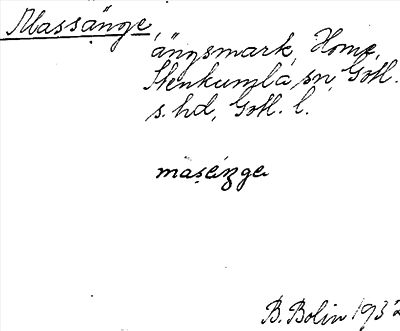 Massänge,
ängsmark, Home,
Stenkumla sn, Gotl.
s. hd, Gotl. l.
B. Bolin 1932